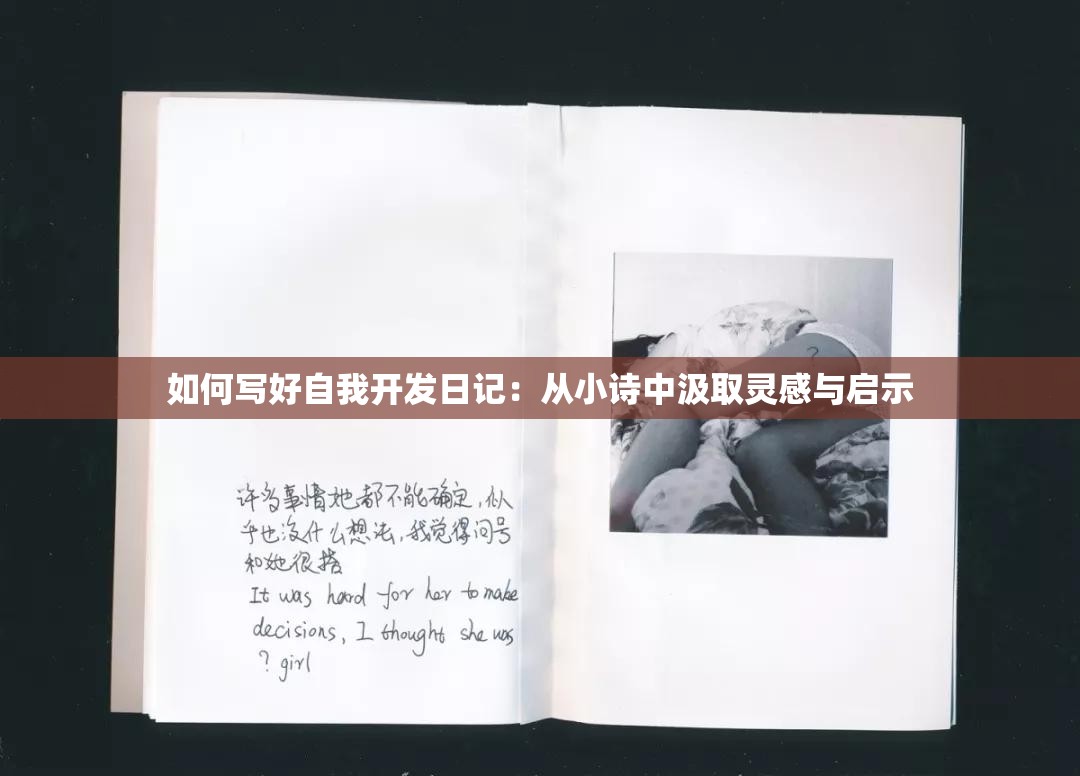 如何写好自我开发日记：从小诗中汲取灵感与启示
?
许多事情她都不能确定，似
乎也没什么想法，我觉得问号
和她很搭
It was hard for her to make
decisions, I thought she was
? girl